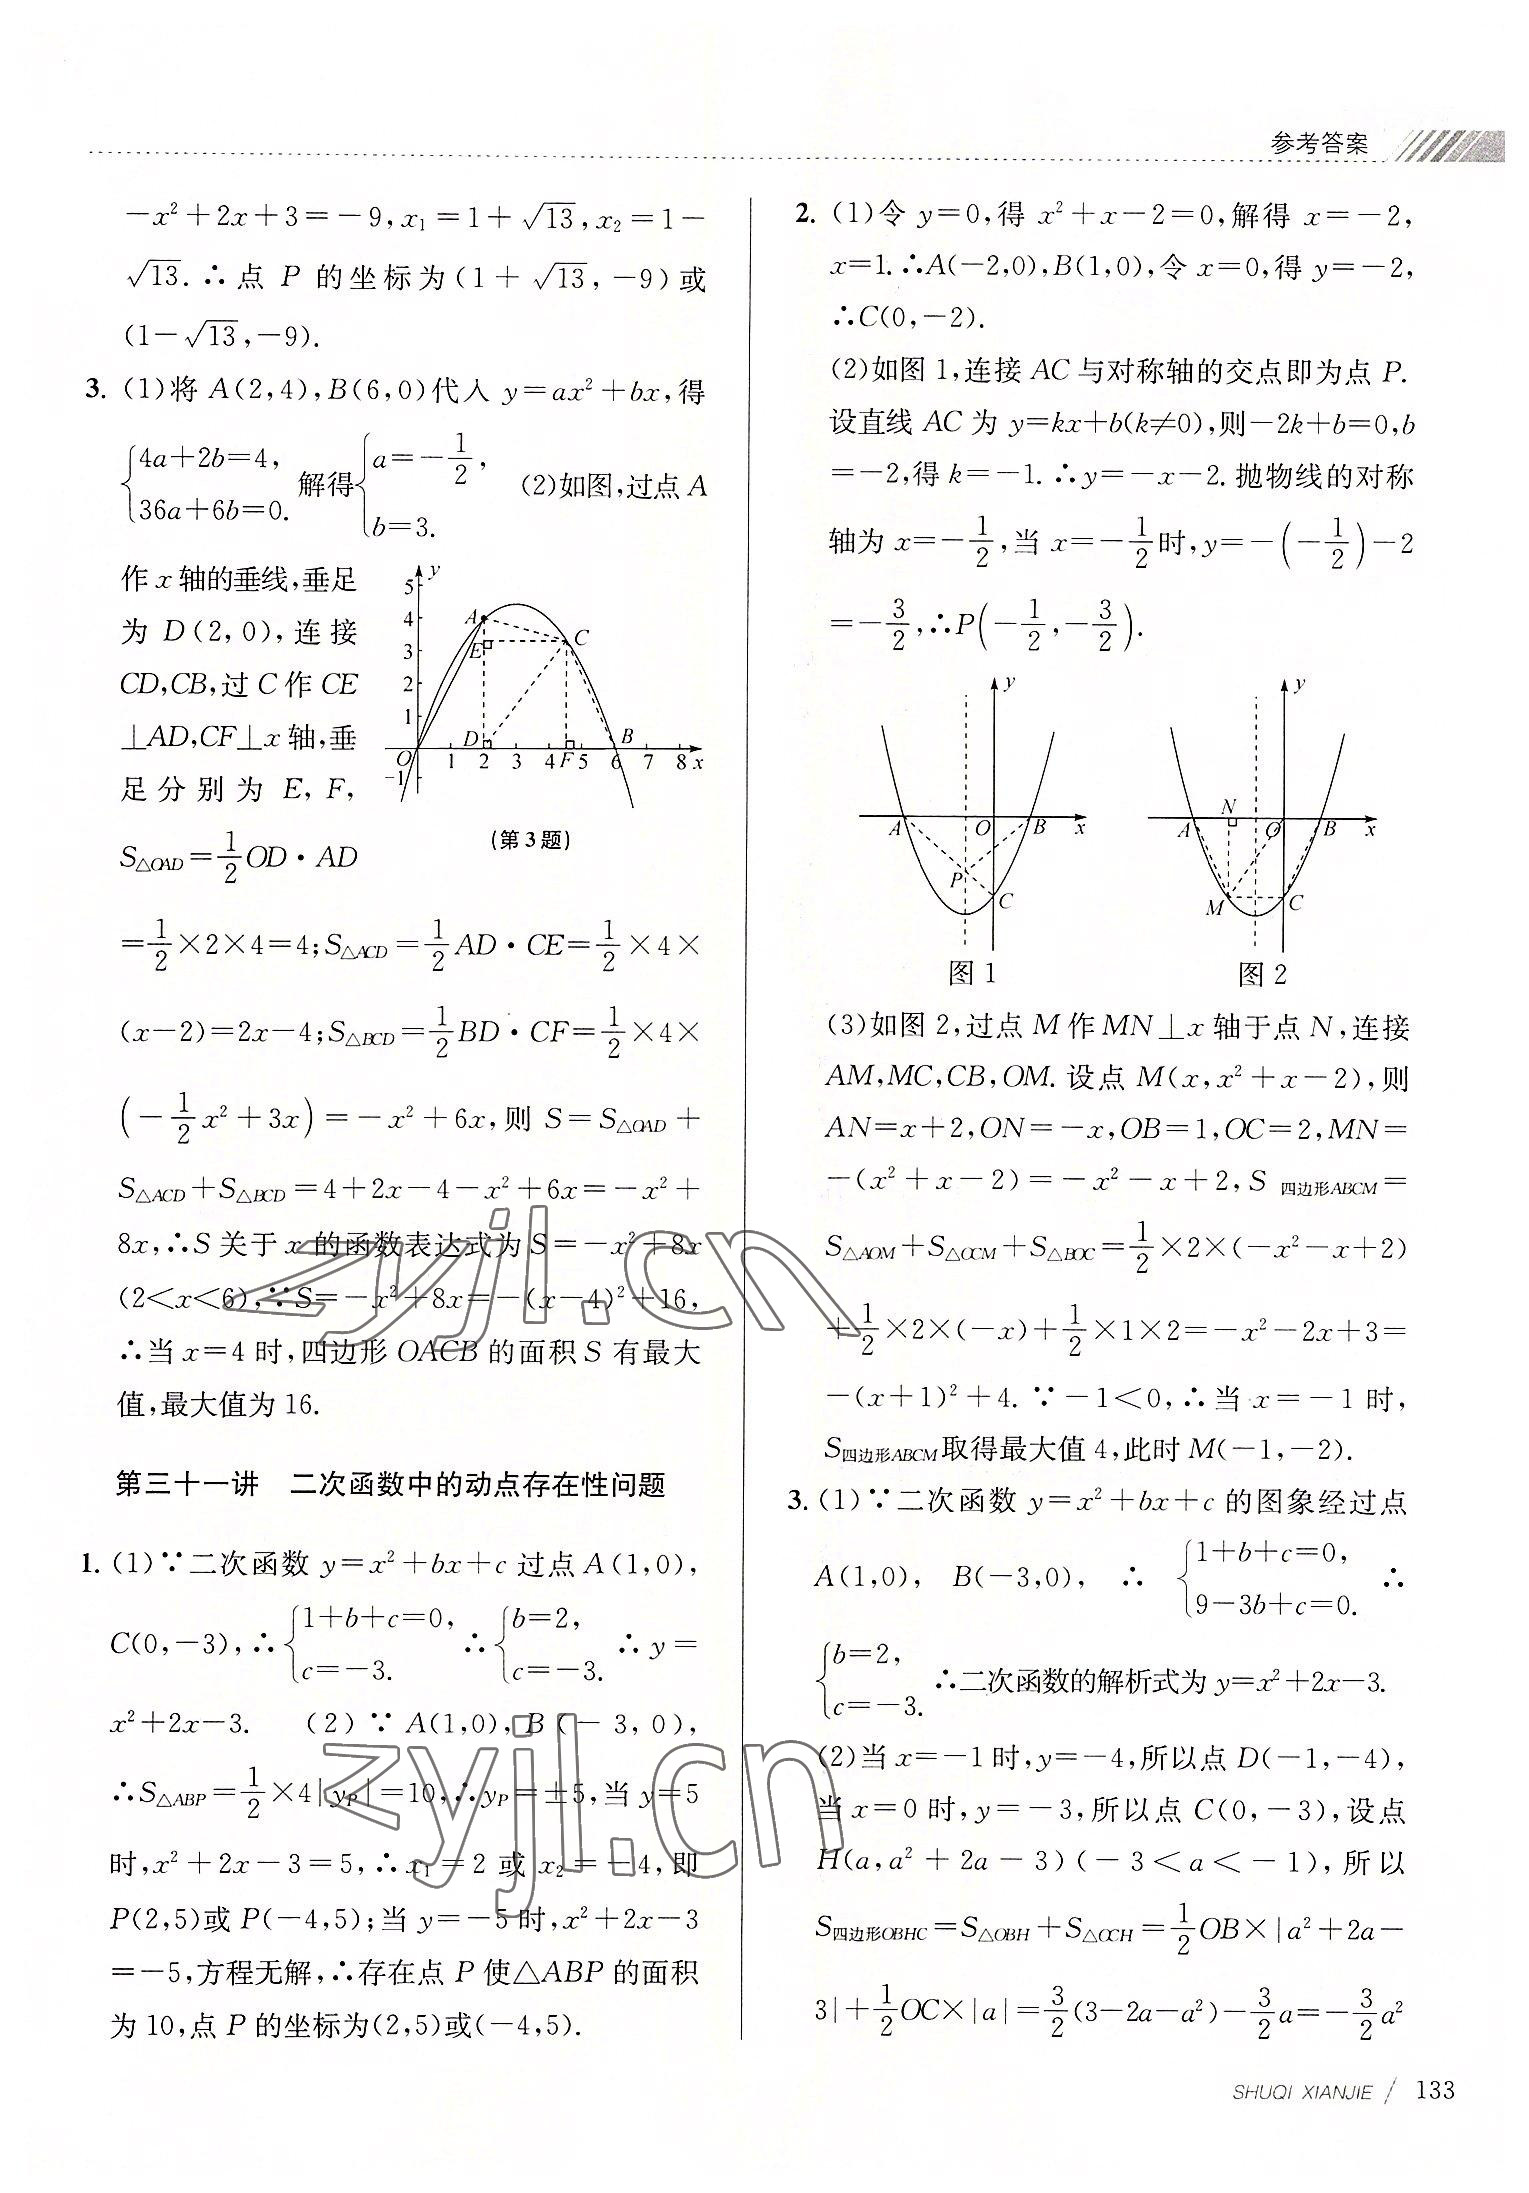 参考答案
−x²+2x+3=−9,x₁=1+√13,x₂=1−
√13.∴点 P 的坐标为(1+√13,−9)或
(1−√13,−9).
3. (1)将 A(2,4),B(6,0)代入 y=ax²+bx,得
{4a+2b=4, 36a+6b=0. 解得{a=−1/2, b=3. (2)如图,过点 A
作 x 轴的垂线,垂足
为 D(2,0),连接
CD,CB,过 C 作 CE
⊥AD,CF⊥x 轴,垂
足分别为 E, F,
S△OAD=1/2OD·AD
y
5
4
3
2
1
−1
A
E
C
D
O
F
B
1 2 3 4 5 6 7 8 x
(第3题)
=1/2×2×4=4;S△ACD=1/2AD·CE=1/2×4×
(x−2)=2x−4;S△BCD=1/2BD·CF=1/2×4×
(−1/2x²+3x)=−x²+6x,则 S=S△OAD+
S△ACD+S△BCD=4+2x−4−x²+6x=−x²+
8x,∴S 关于 x 的函数表达式为 S=−x²+8x
(2<x<6),∵S=−x²+8x=−(x−4)²+16,
∴当 x=4 时,四边形 OACB 的面积 S 有最大
值,最大值为 16.
第三十一讲　二次函数中的动点存在性问题
1. (1)∵二次函数 y=x²+bx+c 过点 A(1,0),
C(0,−3),∴{1+b+c=0, c=−3. ∴{b=2, c=−3. ∴y=
x²+2x−3. (2)∵A(1,0),B(−3,0),
∴S△ABP=1/2×4|yP|=10,∴yP=±5,当 y=5
时,x²+2x−3=5,∴x₁=2 或 x₂=−4,即
P(2,5)或 P(−4,5);当 y=−5 时,x²+2x−3
=−5,方程无解,∴存在点 P 使△ABP 的面积
为 10,点 P 的坐标为(2,5)或(−4,5).
2. (1)令 y=0,得 x²+x−2=0,解得 x=−2,
x=1.∴A(−2,0),B(1,0),令 x=0,得 y=−2,
∴C(0,−2).
(2)如图 1,连接 AC 与对称轴的交点即为点 P.
设直线 AC 为 y=kx+b(k≠0),则−2k+b=0,b
=−2,得 k=−1.∴y=−x−2.抛物线的对称
轴为 x=−1/2,当 x=−1/2时,y=−(−1/2)−2
=−3/2,∴P(−1/2,−3/2).
y
A
O
B
x
P
C
图 1
y
N
A
O
B
x
M
C
图 2
(3)如图 2,过点 M 作 MN⊥x 轴于点 N,连接
AM,MC,CB,OM. 设点 M(x,x²+x−2),则
AN=x+2,ON=−x,OB=1,OC=2,MN=
−(x²+x−2)=−x²−x+2,S四边形ABCM=
S△AOM+S△OCM+S△BOC=1/2×2×(−x²−x+2)
+1/2×2×(−x)+1/2×1×2=−x²−2x+3=
−(x+1)²+4.∵−1<0,∴当 x=−1 时,
S四边形ABCM取得最大值 4,此时 M(−1,−2).
3. (1)∵二次函数 y=x²+bx+c 的图象经过点
A(1,0), B(−3,0), ∴{1+b+c=0, 9−3b+c=0. ∴
{b=2, c=−3. ∴二次函数的解析式为 y=x²+2x−3.
(2)当 x=−1 时,y=−4,所以点 D(−1,−4),
当 x=0 时,y=−3,所以点 C(0,−3),设点
H(a,a²+2a−3)(−3<a<−1),所以
S四边形OBHC=S△OBH+S△OCH=1/2OB×|a²+2a−
3|+1/2OC×|a|=3/2(3−2a−a²)−3/2a=−3/2a²
zyjl.cn
zyjl.cn
SHUQI XIANJIE / 133